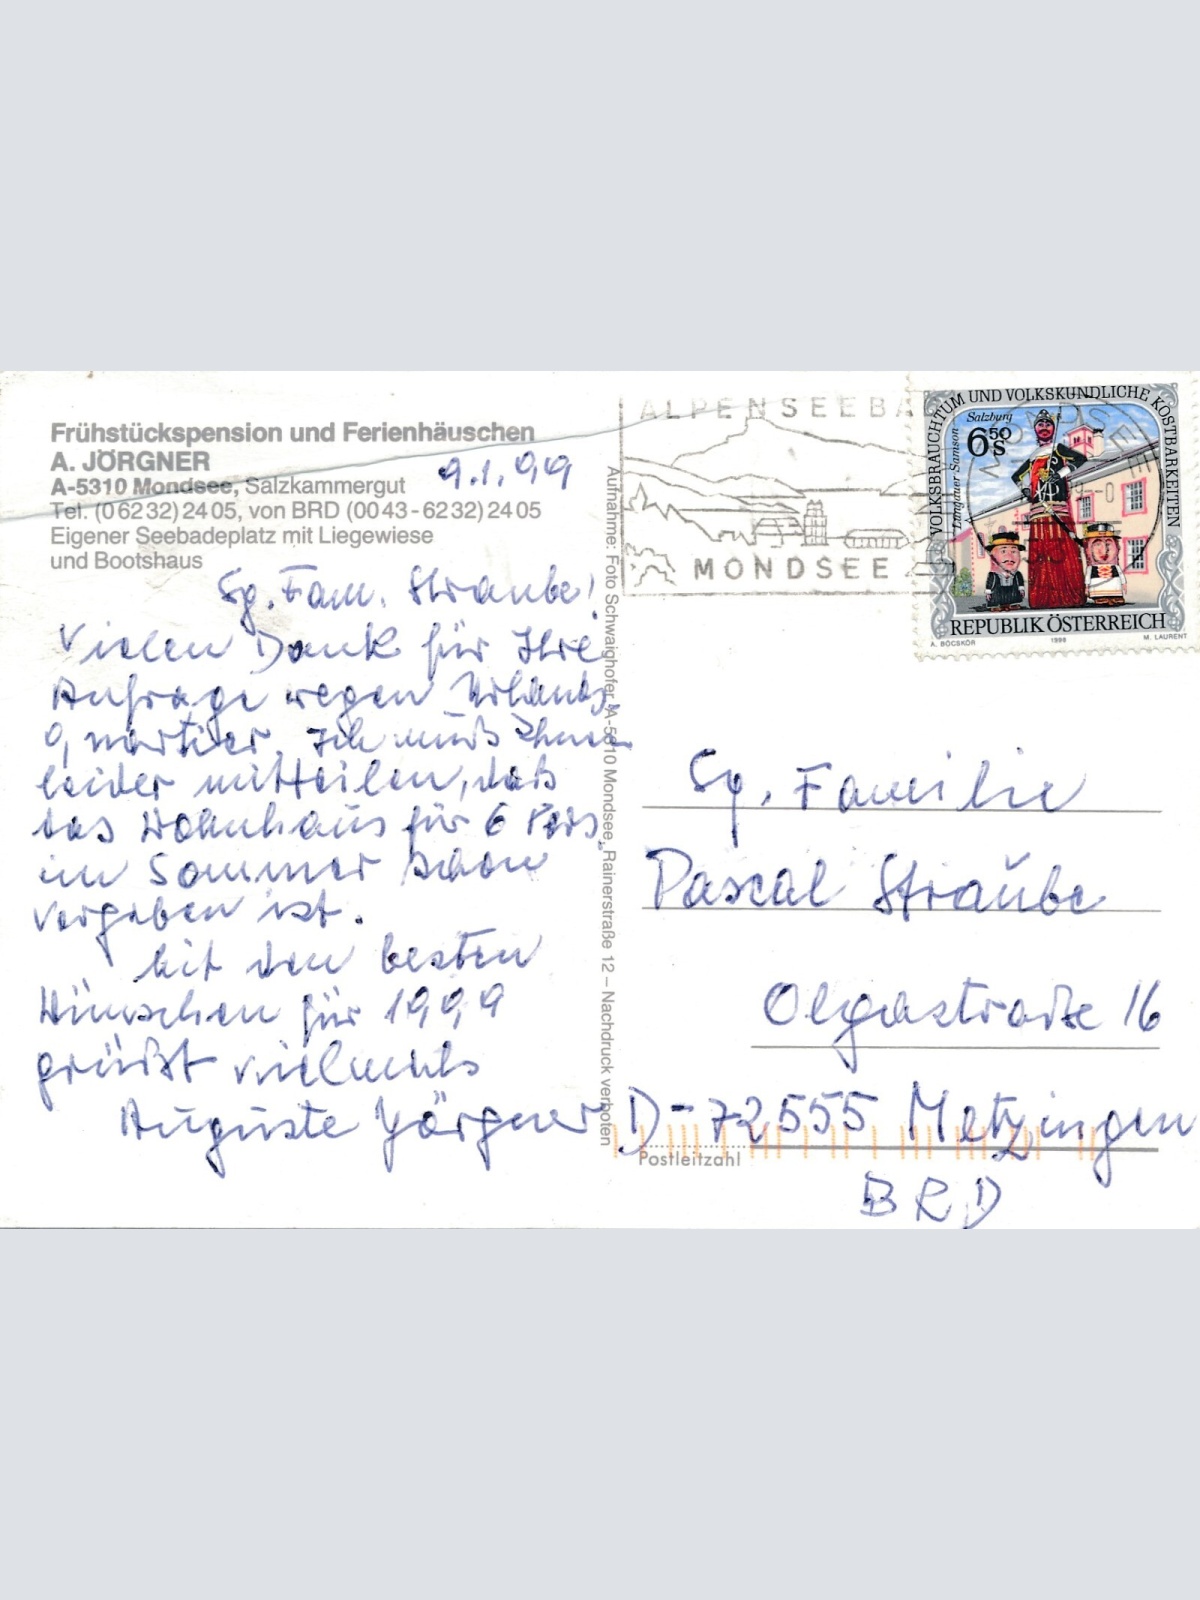 Frühstückspension und Ferienhäuschen
A. JÖRGNER
A-5310 Mondsee, Salzkammergut
Tel. (0 62 32) 24 05, von BRD (00 43 - 62 32) 24 05
Eigener Seebadeplatz mit Liegewiese
und Bootshaus
9.1.99
Sg. Fam. Straube!
Vielen Dank für Ihre
Anfrage wegen Urlaubs-
quartier. Ich muß Ihnen
leider mitteilen, daß
das Wohnhaus für 6 Pers.
im Sommer schon
vergeben ist.
Mit den besten
Wünschen für 1999
grüßt vielmals
Auguste Jörgner
Aufnahme: Foto Schwaighofer, A-5310 Mondsee, Rainerstraße 12 – Nachdruck verboten
ALPENSEEBA
MONDSEE
VOLKSBRAUCHTUM UND VOLKSKUNDLICHE KOSTBARKEITEN
Salzburg
6 50 S
Lungauer Samson
REPUBLIK ÖSTERREICH
A. BÖCSKÖR 1998 M. LAURENT
Sg. Familie
Pascal Straube
Olgastraße 16
D-72555 Metzingen
Postleitzahl
BRD